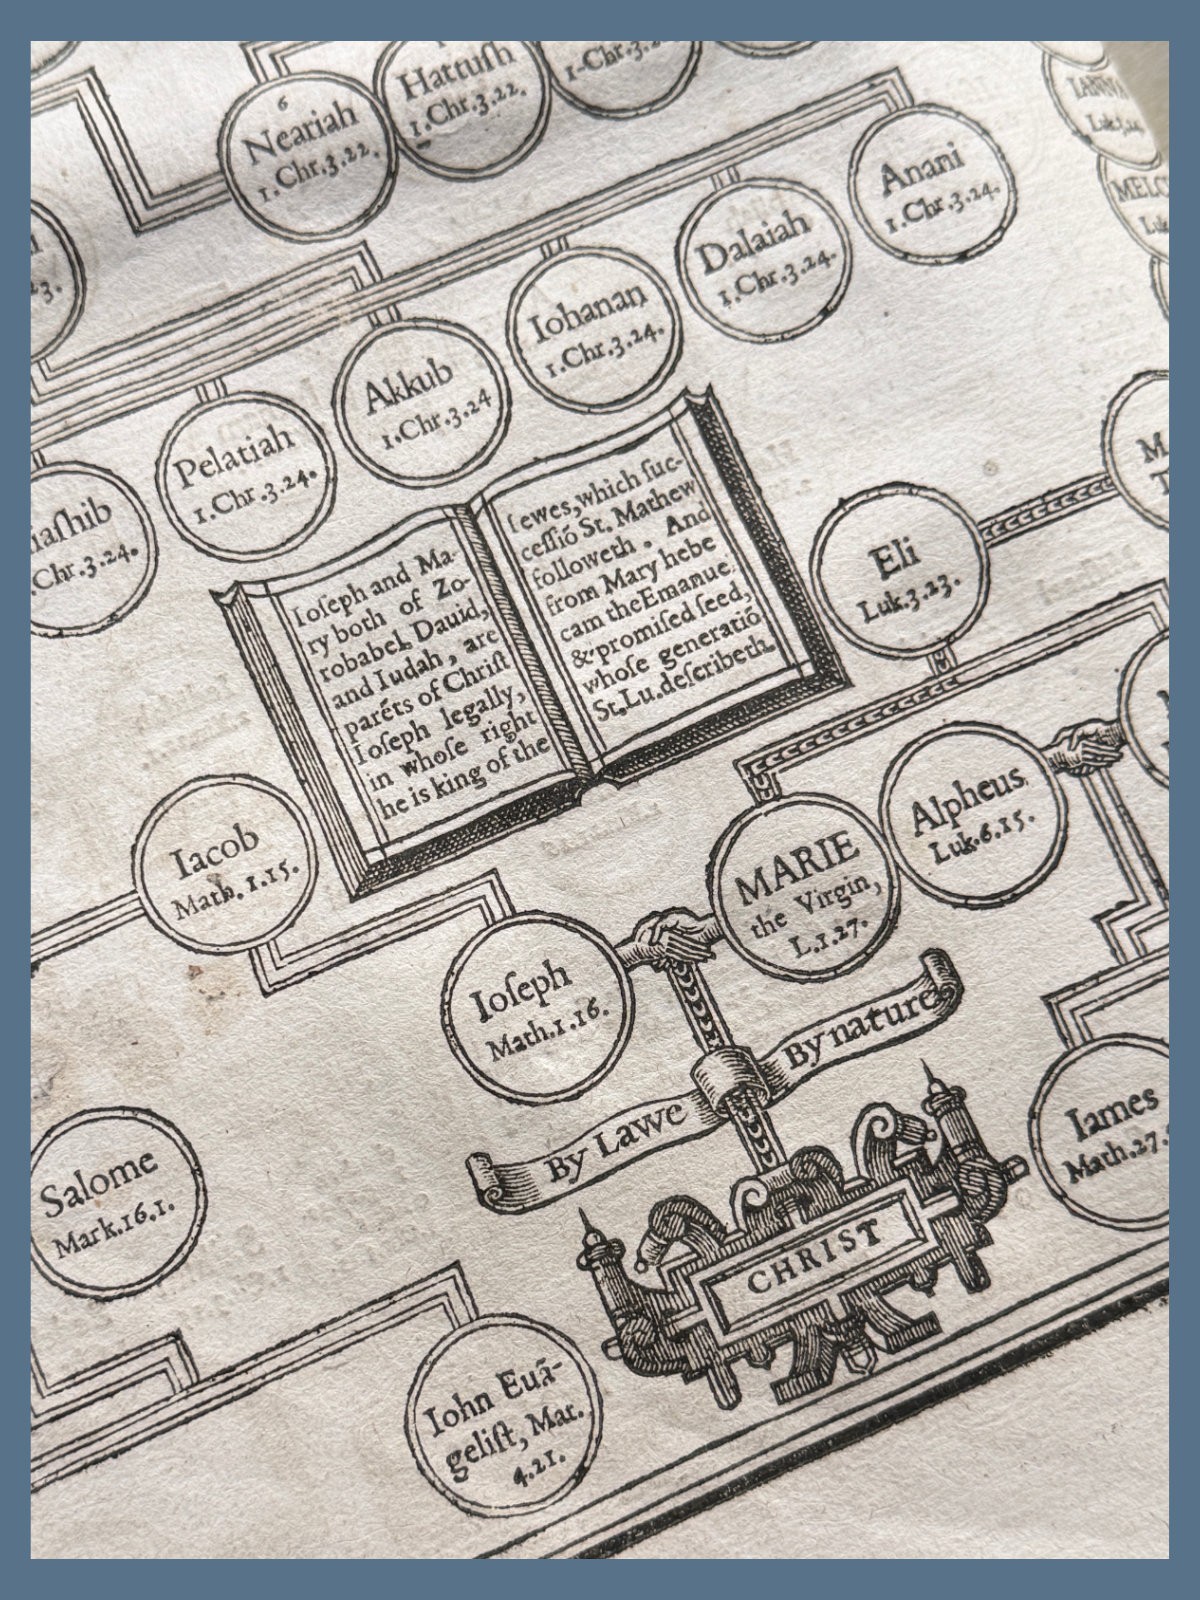 Hattuſh
1.Chr.3.22.
1.Chr.3.
6
Neariah
1.Chr.3.22.
IANNA
Luk.3.24.
MELC
Luk
Anani
1.Chr.3.24.
Dalaiah
1.Chr.3.24.
Iohanan
1.Chr.3.24.
Akkub
1.Chr.3.24
Pelatiah
1.Chr.3.24.
iaſhib
.Chr.3.24.
23.
Ioſeph and Ma-
ry both of Zo-
robabel, Dauid,
and Iudah, are
parēts of Chriſt
Ioſeph legally,
in whoſe right
he is king of the
Iewes, which ſuc-
ceſſiō St. Mathew
followeth. And
from Mary hebe
cam the Emanue.
& promiſed ſeed,
whoſe generatiō
St, Lu. deſcribeth.
Eli
Luk.3.23.
M
Iacob
Math.1.15.
Alpheus
Luk.6.15.
MARIE
the Virgin,
L.1.27.
Ioſeph
Math.1.16.
By Lawe
By nature
CHRIST
Iames
Math.27.
Salome
Mark.16.1.
Iohn Euā-
geliſt, Mar.
4.21.